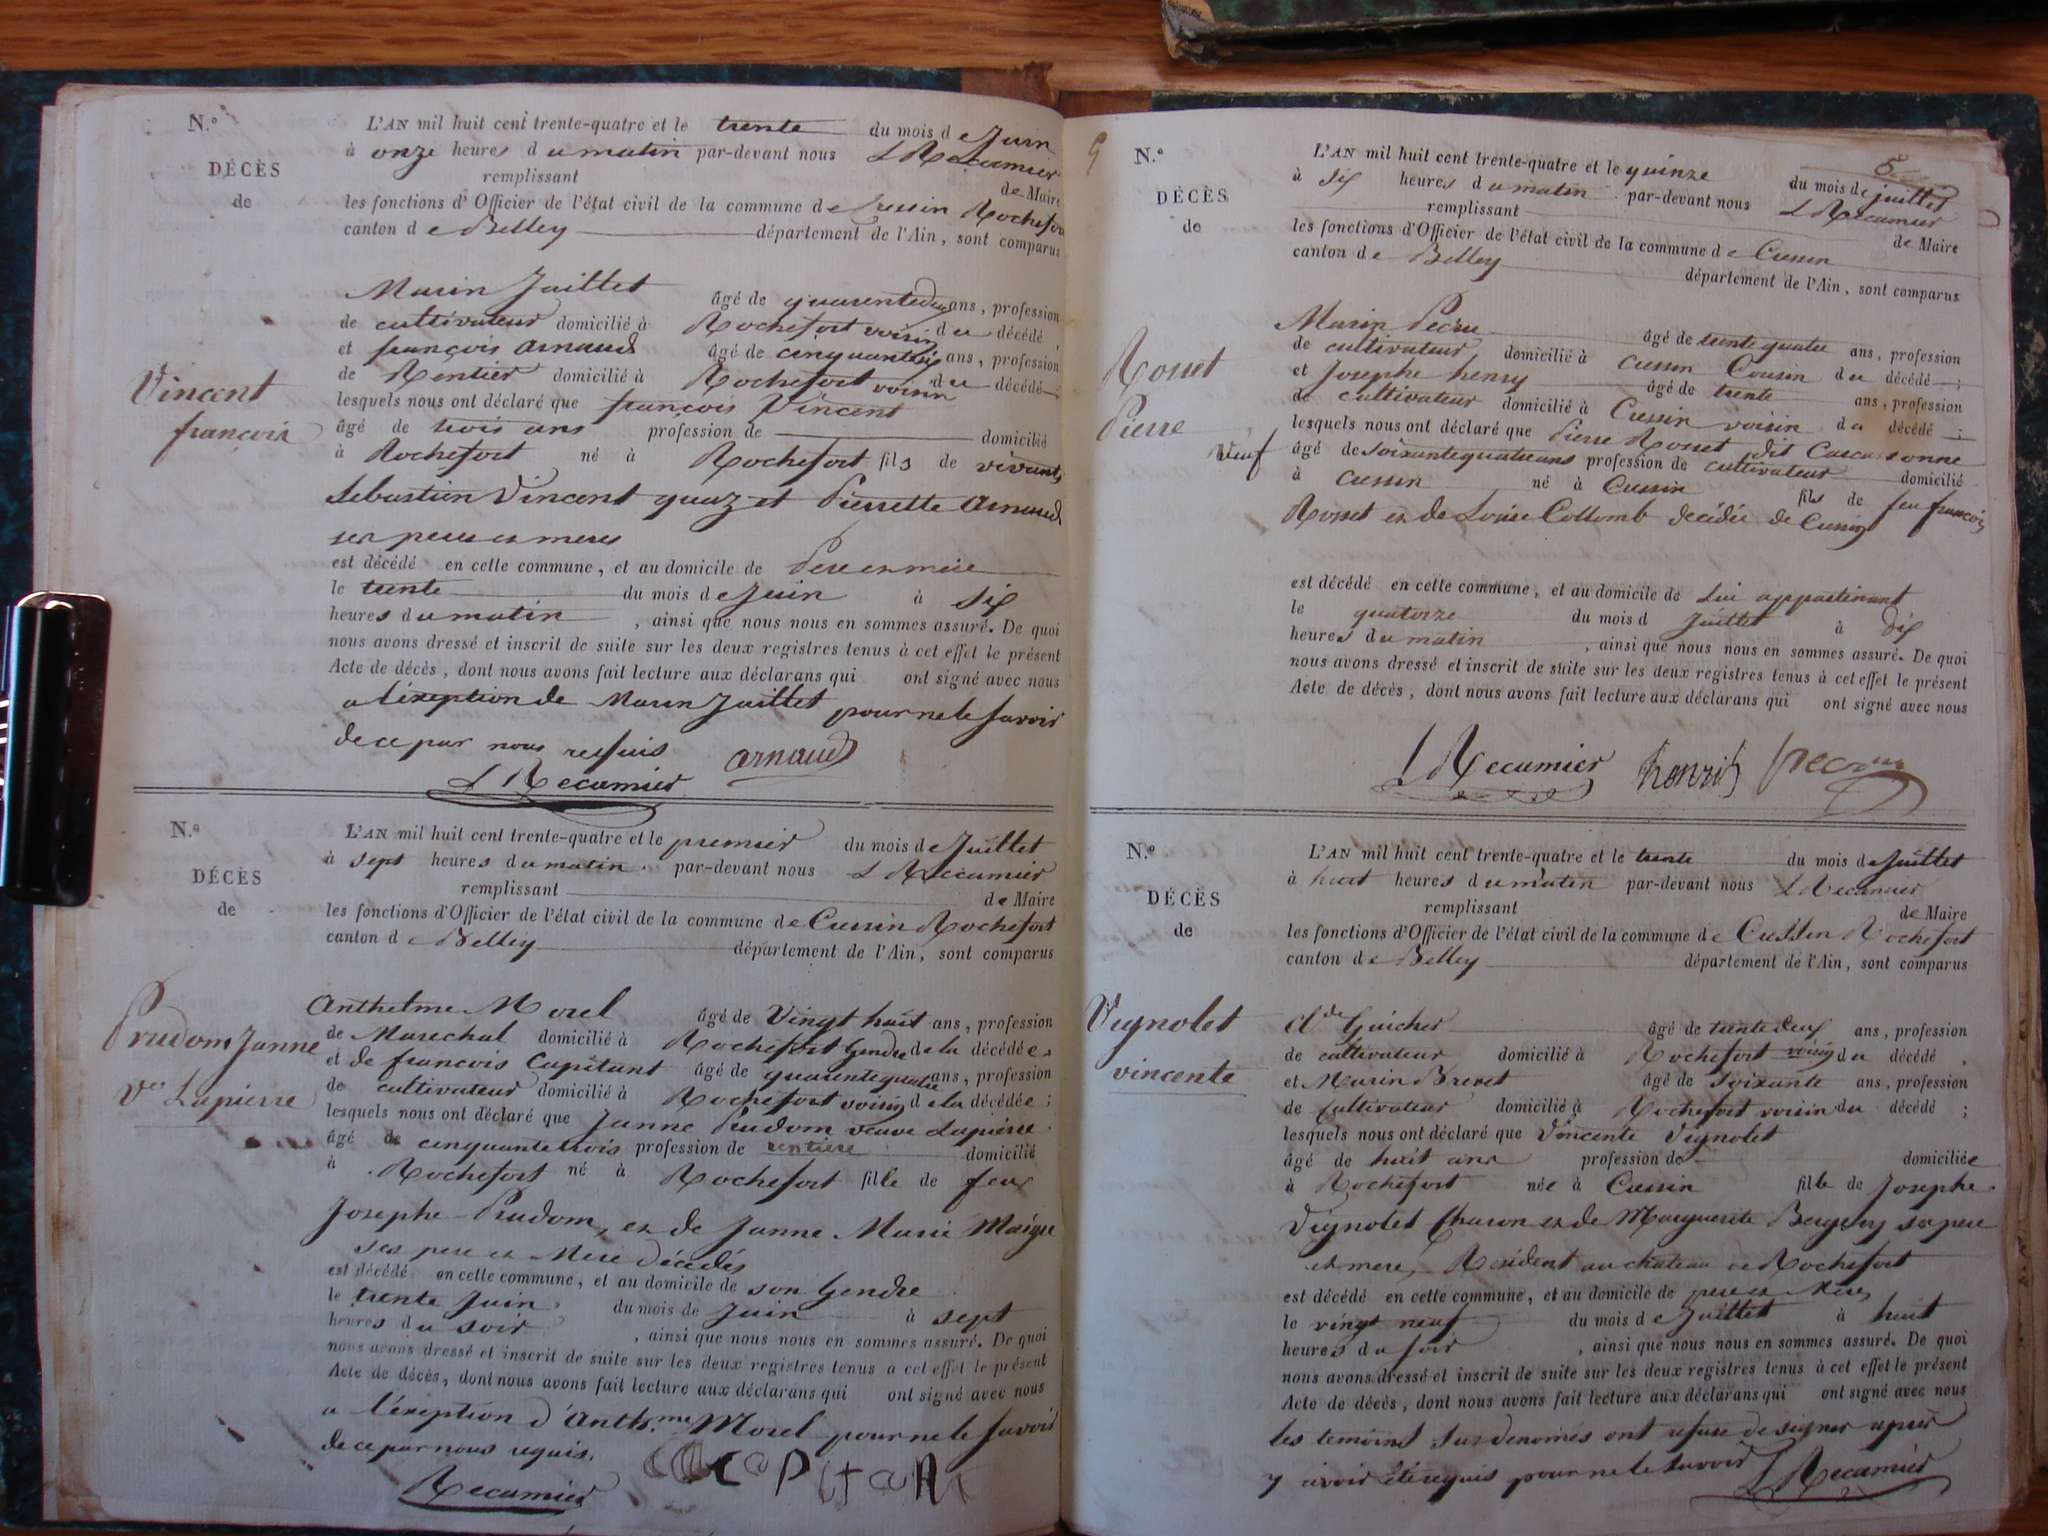 N.o
DÉCÈS
de
Vincent
françois
L'AN mil huit cent trente-quatre et le trente du mois de Juin
à onze heures du matin par-devant nous L Recamier
remplissant de Maire
les fonctions d'Officier de l'état civil de la commune de Cressin Rochefort
canton de Belley département de l'Ain, sont comparus
Marin Juillet âgé de quarentedeux ans, profession
de cultivateur domicilié à Rochefort voisin du décédé,
et françois arnaud âgé de cinquantesix ans, profession
de Rentier domicilié à Rochefort voisin du décédé;
lesquels nous ont déclaré que françois Vincent
âgé de trois ans profession de domicilié
à Rochefort né à Rochefort fils de vivants
Sebastien Vincent quaz et Pierrette Arnaud
ses pere et mere
est décédé en cette commune, et au domicile de Pere et mere
le trente du mois de Juin à Six
heures du matin, ainsi que nous nous en sommes assuré. De quoi
nous avons dressé et inscrit de suite sur les deux registres tenus à cet effet le présent
Acte de décès, dont nous avons fait lecture aux déclarans qui ont signé avec nous
a l'éxeption de Marin Juillet pour ne le savoir
de ce par nous requis arnaud
L Recamier
N.o
DÉCÈS
de
Prudom Janne
Ve Lapierre
L'AN mil huit cent trente-quatre et le premier du mois de Juillet
à sept heures du matin par-devant nous L Recamier
remplissant de Maire
les fonctions d'Officier de l'état civil de la commune de Cressin Rochefort
canton de Belley département de l'Ain, sont comparus
Anthelme Morel âgé de Vingt huit ans, profession
de Marechal domicilié à Rochefort Gendre de la décédée,
et de françois Capitant âgé de quarentequatre ans, profession
de cultivateur domicilié à Rochefort voisin de la décédée;
lesquels nous ont déclaré que Janne Prudom veuve Lapierre
âgé de cinquantetrois profession de rentiere domicilié
à Rochefort né à Rochefort fille de feux
Josephe Prudom, et de Janne Marie Maigre
ses pere et Mere décédés
est décédé en cette commune, et au domicile de son Gendre
le trente Juin du mois de Juin à sept
heures du soir, ainsi que nous nous en sommes assuré. De quoi
nous avons dressé et inscrit de suite sur les deux registres tenus a cet effet le présent
Acte de décès, dont nous avons fait lecture aux déclarans qui ont signé avec nous
a l'éxeption d'Anth.me Morel pour ne le savoir
de ce par nous requis.
Recamier capitant
5
N.o
DÉCÈS
de
Rosset
Pierre
Veuf
L'AN mil huit cent trente-quatre et le quinze du mois de juillet
à six heures du matin par-devant nous L Recamier
remplissant de Maire
les fonctions d'Officier de l'état civil de la commune de Cressin
canton de Belley département de l'Ain, sont comparus
Marin Pecru âgé de trente quatre ans, profession
de cultivateur domicilié à Cressin Cousin du décédé;
et Josephe henry âgé de trente ans, profession
de cultivateur domicilié à Cressin voisin du décédé;
lesquels nous ont déclaré que Pierre Rosset dit Carcassonne
âgé de soixantequatreans profession de cultivateur domicilié
à Cressin né à Cressin fils de feu françois
Rosset et de Louise Collomb decédée de Cressin
est décédé en cette commune, et au domicile de Lui appartenant
le quatorze du mois d Juillet à dix
heures du matin, ainsi que nous nous en sommes assuré. De quoi
nous avons dressé et inscrit de suite sur les deux registres tenus à cet effet le présent
Acte de décès, dont nous avons fait lecture aux déclarans qui ont signé avec nous
L Recamier henri pecru
N.o
DÉCÈS
de
Vignolet
vincente
L'AN mil huit cent trente-quatre et le trente du mois de Juillet
à huit heures du matin par-devant nous L Recamier
remplissant de Maire
les fonctions d'Officier de l'état civil de la commune de Cressin Rochefort
canton de Belley département de l'Ain, sont comparus
Cl.de Guicher âgé de trentedeux ans, profession
de cultivateur domicilié à Rochefort voisin du décédé,
et Marin Brevet âgé de soixante ans, profession
de cultivateur domicilié à Rochefort voisin du décédé;
lesquels nous ont déclaré que Vincente Vignolet
âgé de huit ans profession de domiciliée
à Rochefort née à Cressin fille de Josephe
Vignolet Charon et de Marguerite ses pere
et mere, Resident au chateau de Rochefort
est décédé en cette commune, et au domicile de pere et Mere
le vingt neuf du mois de Juillet à huit
heures du soir, ainsi que nous nous en sommes assuré. De quoi
nous avons dressé et inscrit de suite sur les deux registres tenus à cet effet le présent
Acte de décès, dont nous avons fait lecture aux déclarans qui ont signé avec nous
les temoins susdenomés ont refuse de signer apres
y avoir été requis pour ne le savoir L Recamier